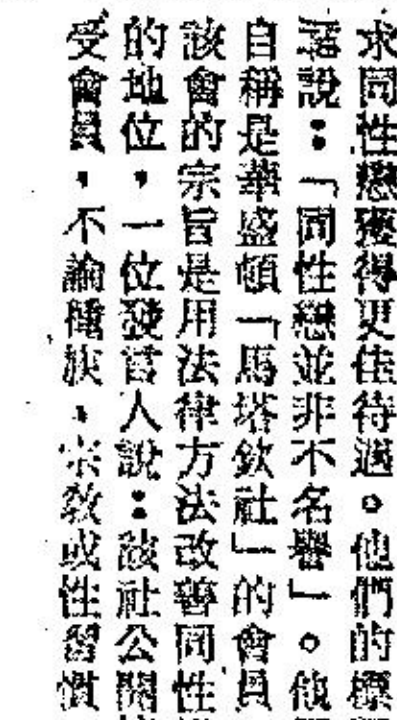 求同性戀獲得更佳待遇。他們的標
語說：「同性戀並非不名譽」。他
自稱是華盛頓「馬塔欽社」的會員
該會的宗旨是用法律方法改善同性
的地位，一位發言人說：該社公開
受會員，不論種族、宗教或性習慣